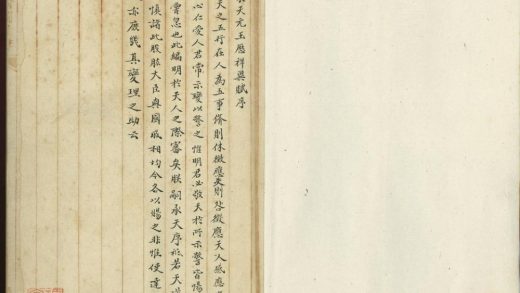 天元玉曆祥異賦序
天之五行在人為五事脩則休徵應失則咎徵應天人感應
心仁愛人君常示變以警之惟明君必敬天於所示警皆惕
嘗忽也此編明於天人之際審矣朕嗣承天序祗若天
慎諸此股肱大臣與國休戚相均今各以賜之非惟使達
亦庶幾真燮理之助云